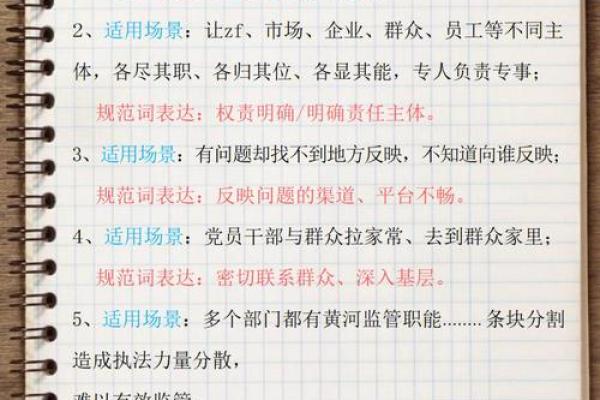 2、适用场景：让zf、市场、企业、群众、员工等不同主
体，各尽其职、各归其位、各显其能，专人负责专事；
规范词表达：权责明确/明确责任主体。
3、适用场景：有问题却找不到地方反映，不知道向谁反映；
规范词表达：反映问题的渠道、平台不畅。
4、适用场景：党员干部与群众拉家常、去到群众家里；
规范词表达：密切联系群众、深入基层。
5、适用场景：多个部门都有黄河监管职能........条块分割
造成执法力量分散，
难以有效监管